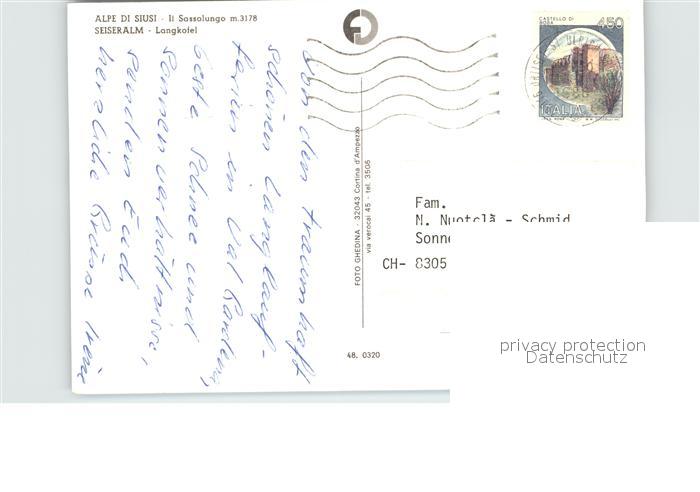 ALPE DI SIUSI - Il Sassolungo m.3178
SEISERALM - Langkofel
Von den traumhaft
schönen Langlauf-
ferien in Val Gardena,
beste Schnee und
Sonnenverhältnisse,
senden Euch
herzliche Grüsse Irene
FOTO GHEDINA - 32043 Cortina d'Ampezzo
via verocai 45 - tel. 3505
48. 0320
CASTELLO DI
BOSA
450
ITALIA
Fam.
N. Nuotclà - Schmid
Sonne
CH- 8305
privacy protection
Datenschutz